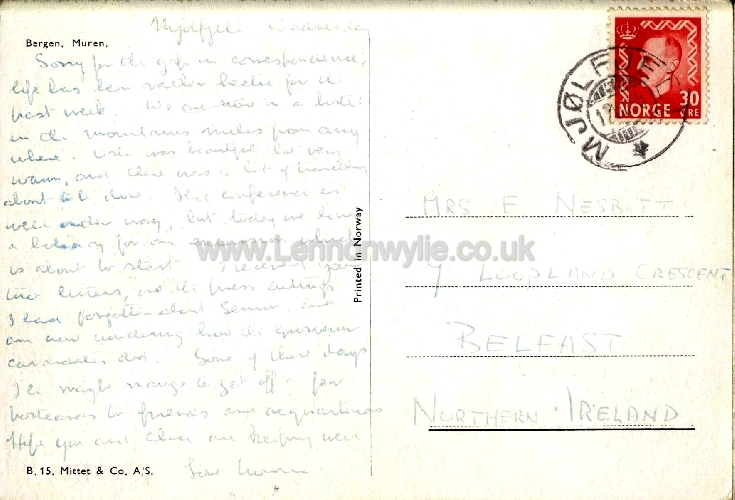 Mjölfjell Wednesday
Bergen. Muren.
Sorry for the gap in correspondence,
life has been rather hectic for the
past week. We are now in a hotel
in the mountains miles from any
where. Oslo was beautiful but very
warm, and there was a lot of travelling
about to be done. The conference is
well under way, but today we have
a holiday for our excursion which
is about to start. I received your
two letters, and the press cuttings
I had forgotten about Senior, and
am now wondering how the Grosvenor
candidates did. Some of these days
I'll maybe manage to get off a few
postcards to friends and acquaintances
Hope you and are keeping well
Love
B. 15. Mittet & Co. A/S.
Printed in Norway
NORGE 30
ØRE
MJØLFJELL
MRS F NESBITT
7 LOOPLAND CRESCENT
BELFAST
NORTHERN IRELAND
www.Lennonwylie.co.uk